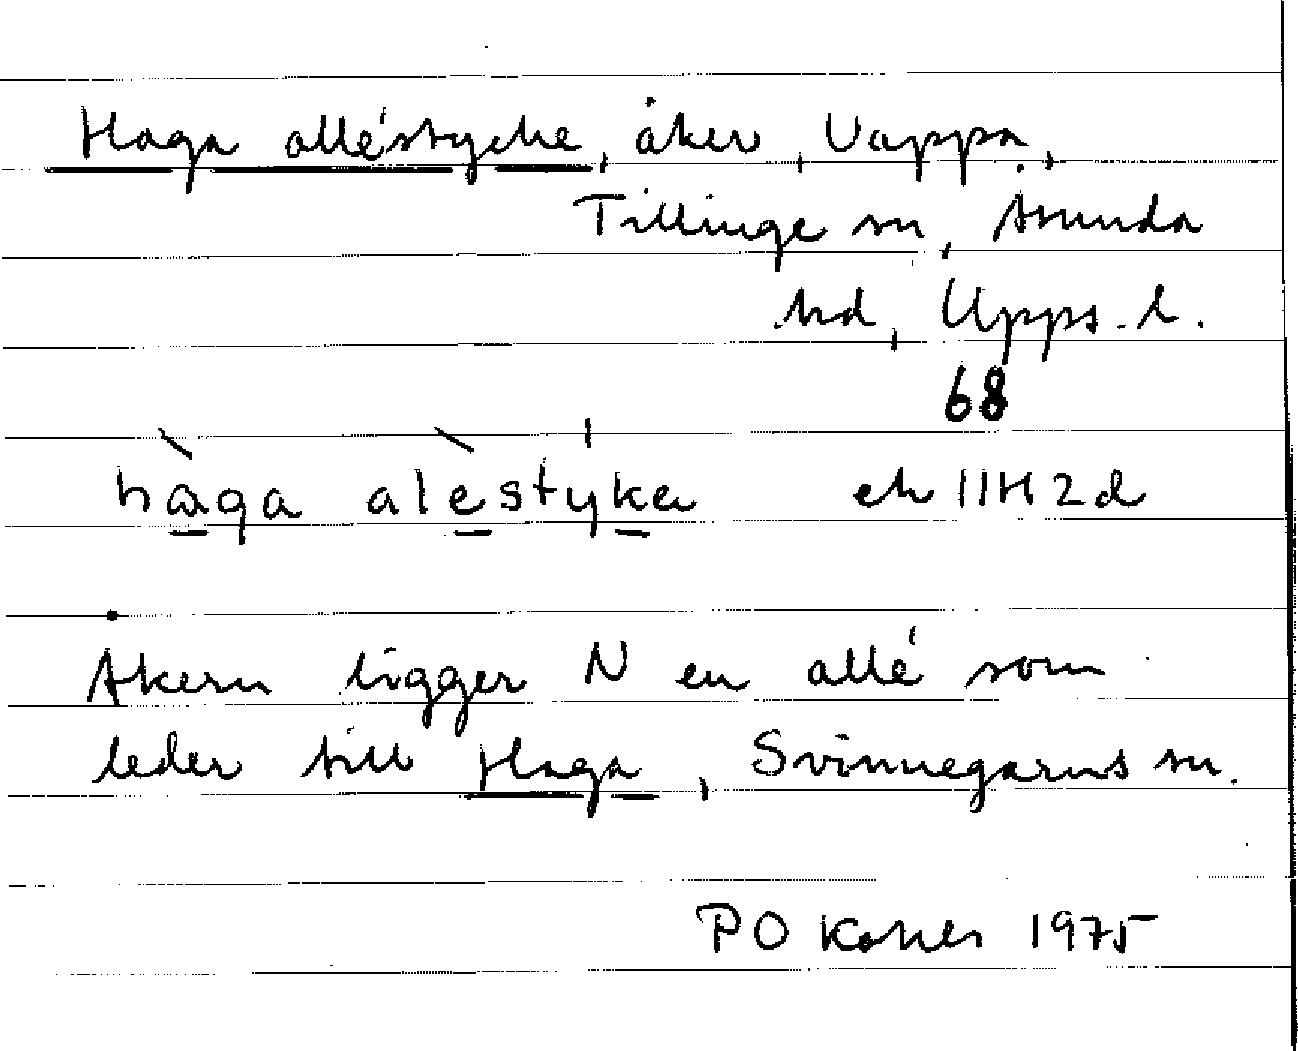 Haga alléstycke, åker, Vappa,
Tillinge sn, Åsunda
hd, Upps. l.
68
hàga alèstyke ek 11H2d
Åkern ligger N en allé som
leder till Haga, Svinnegarns sn.
PO 1975